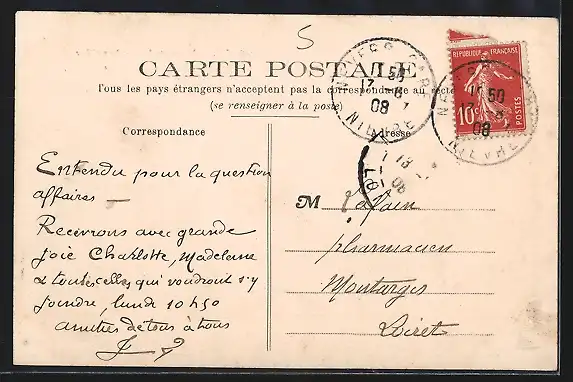 5
CARTE POSTALE
Tous les pays étrangers n'acceptent pas la correspondance au recto
(se renseigner à la poste)
Correspondance
Adresse
Entendu pour la question
affaires —
Recevrons avec grande
joie Charlotte, Madeleine
& toutes celles qui voudront s'y
joindre, lundi 10h50
amitiés de tous à tous
M Lafain
pharmacien
Montargis
Loiret
REPUBLIQUE FRANÇAISE
10c
POSTES
NEVERS GARE
08
NIEVRE
NIEVRE
08
13
08